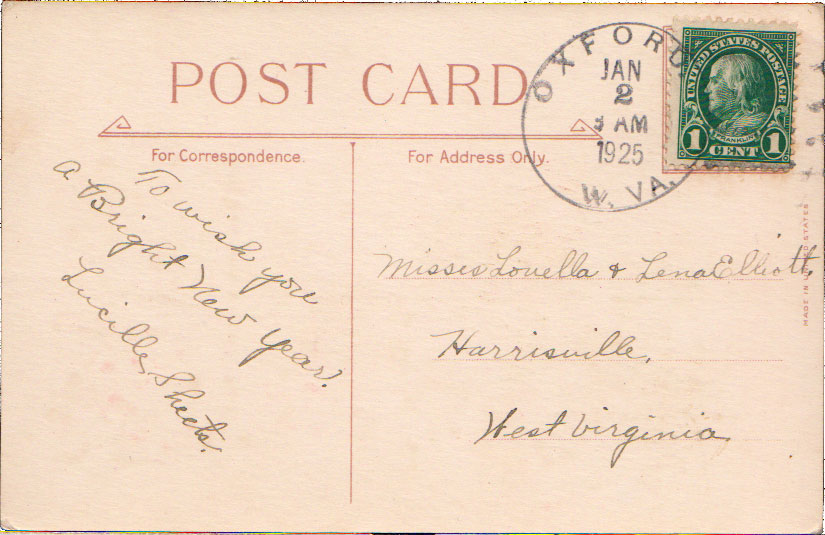 POST CARD
OXFORD
JAN
2
AM
1925
W. VA.
UNITED STATES POSTAGE
FRANKLIN
1 CENT 1
For Correspondence.
For Address Only.
To wish you
a Bright New Year.
Lucille Sheets.
Misses Lovella & Lena Elliott,
Harrisville,
West Virginia
MADE IN UNITED STATES